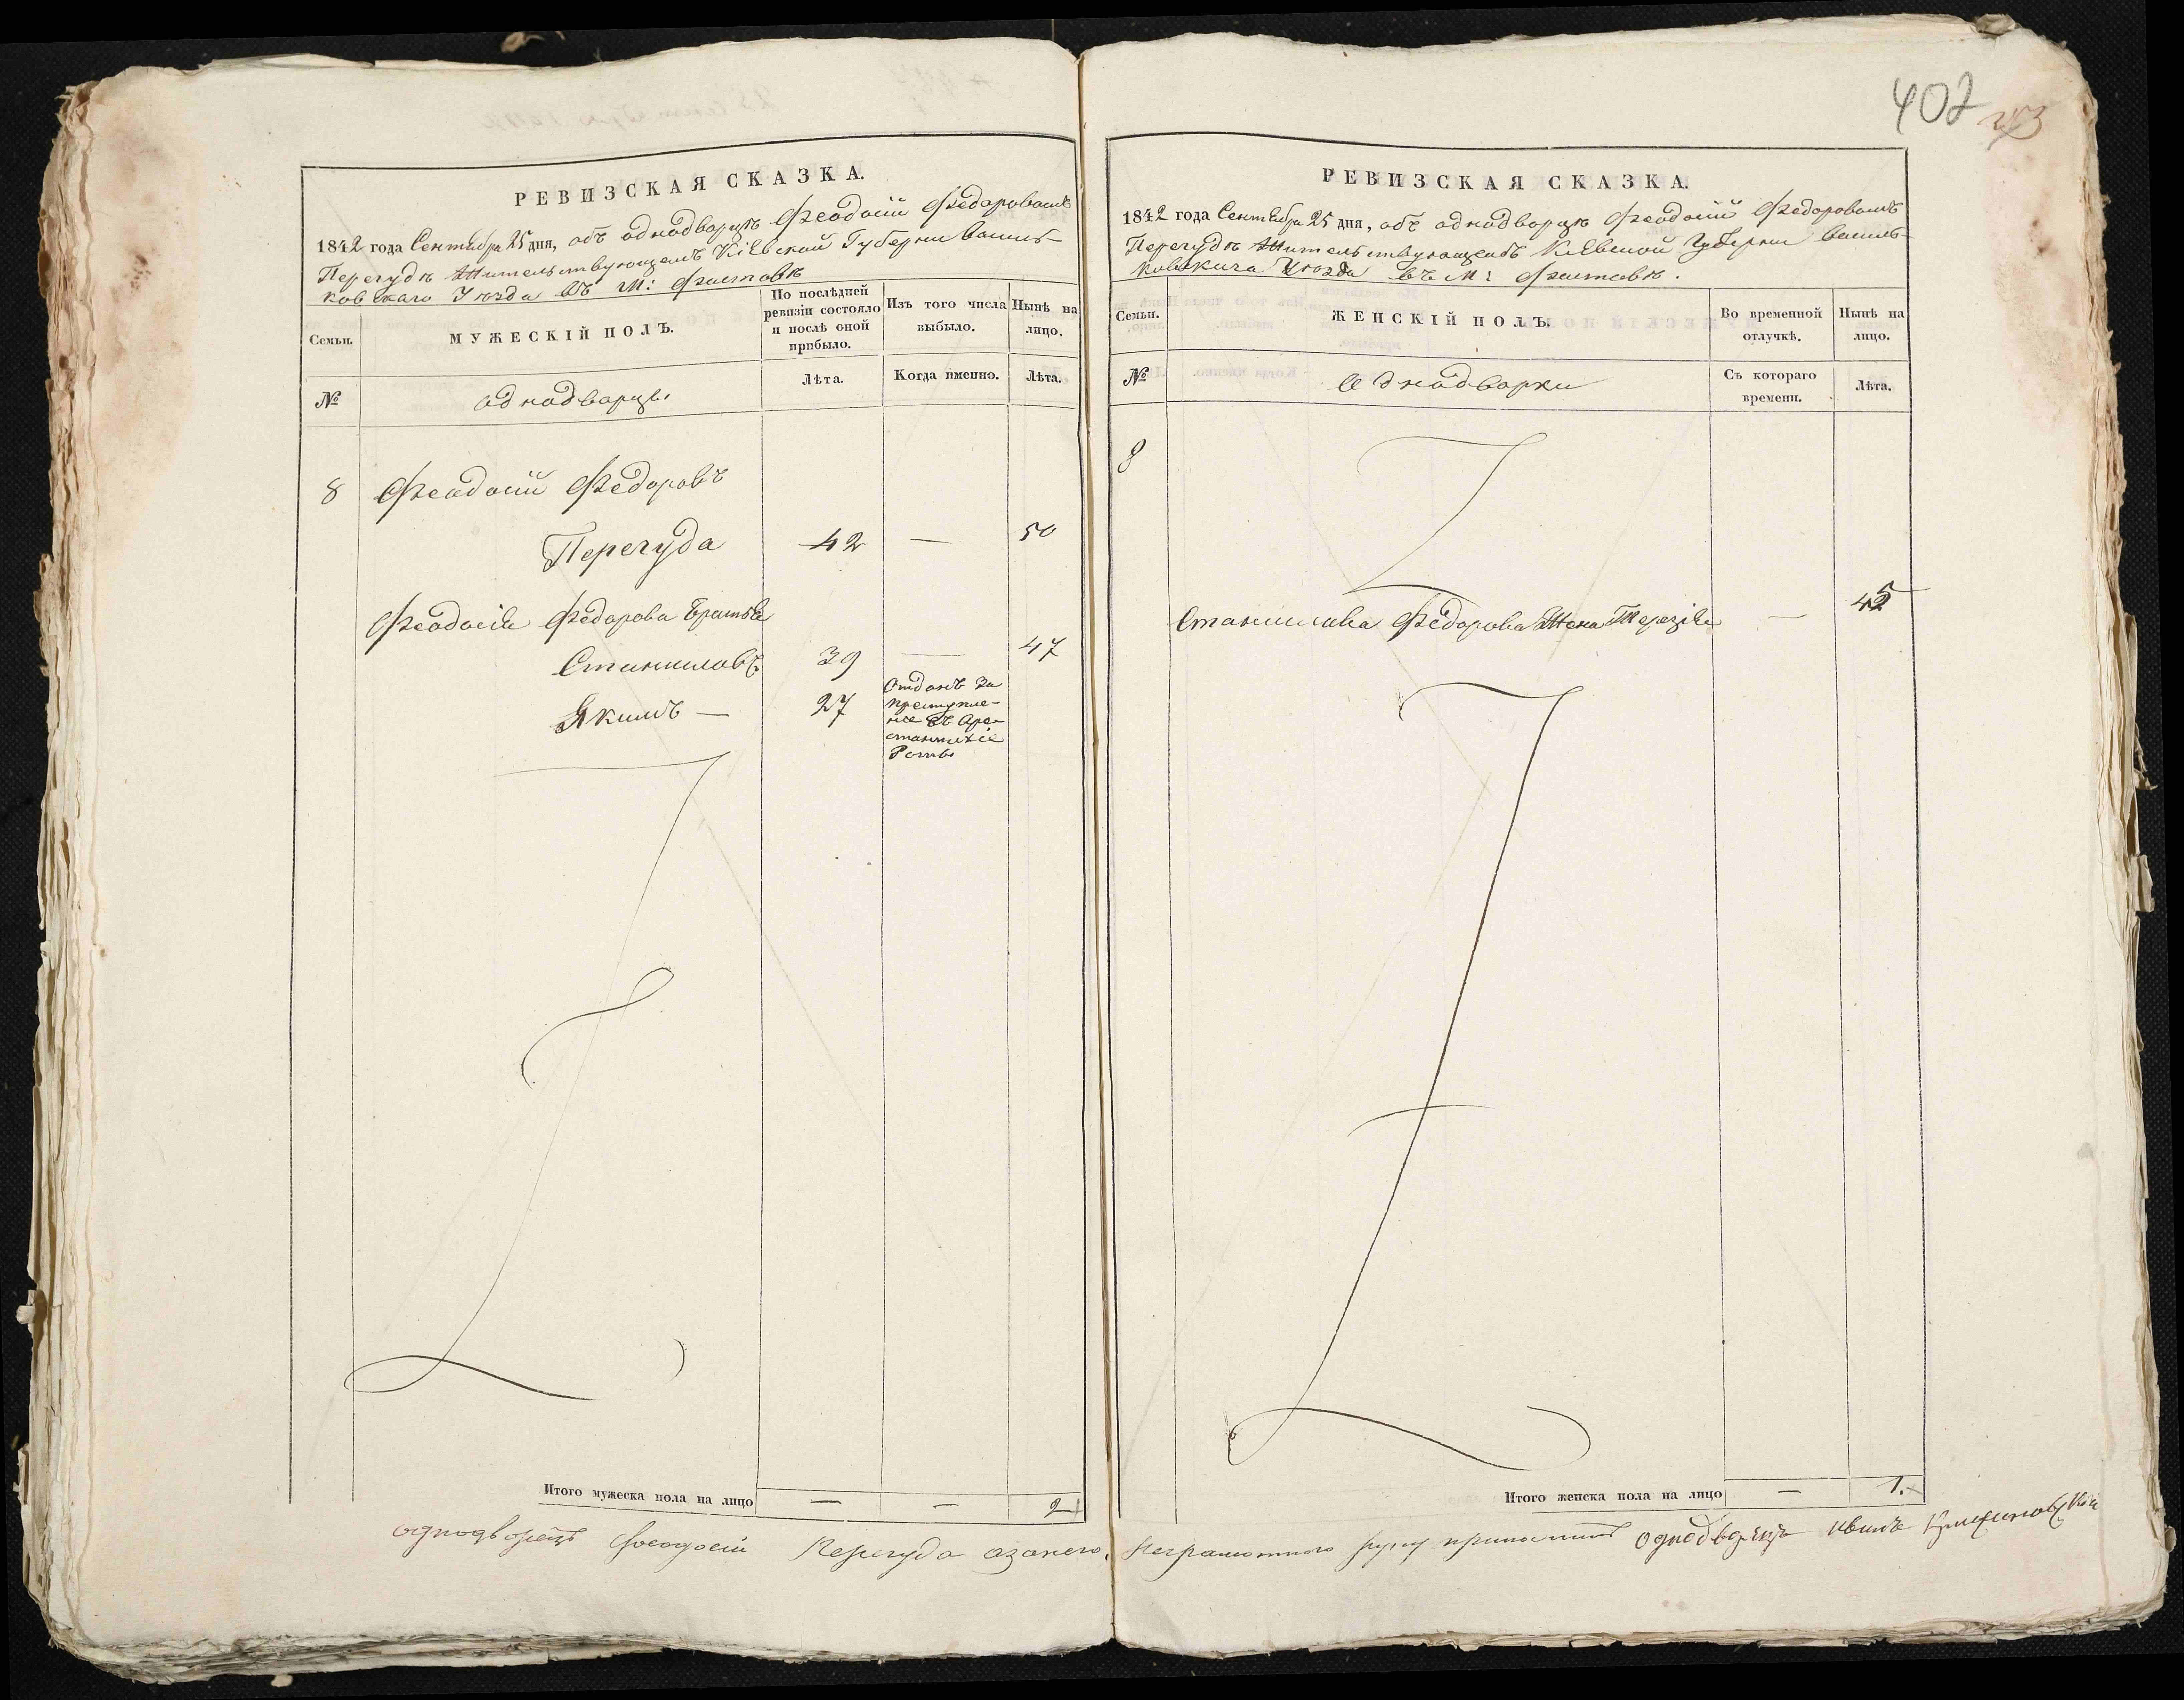 РЕВИЗСКАЯ СКАЗКА.
1842 года Сентября 25 дня, объ однодворцѣ Феодосій Федоровомъ
Перегудѣ Жительствующемъ Кіевской Губерніи Василь-
ковскаго Уѣзда въ М: Фастовѣ
Семьи.
МУЖЕСКІЙ ПОЛЪ.
По послѣдней ревизіи состояло и послѣ оной прибыло.
Изъ того числа выбыло.
Нынѣ на лицо.
№
однодворцы
Лѣта.
Когда именно.
Лѣта.
8 Феодосій Федоровъ
Перегуда 42 — 50
Феодосія Федорова Братья
Станиславъ 39 — 47
Якимъ — 27 Отданъ за
преступле-
ніе въ Аре-
стантскіе
Роты
Итого мужеска пола на лицо — — 2
однодворецъ Феодосій Перегуда а за него
407
РЕВИЗСКАЯ СКАЗКА.
1842 года Сентября 25 дня, объ однодворцѣ Феодосій Федоровомъ
Перегудѣ Жительствующемъ Кіевской Губерніи Василь-
ковскаго Уѣзда въ М: Фастовѣ.
Семьи.
ЖЕНСКІЙ ПОЛЪ.
Во временной отлучкѣ.
Нынѣ на лицо.
№
Однодворки
Съ котораго времени.
Лѣта.
8
Станислава Федорова Жена Терезія — 45
Итого женска пола на лицо — 1.
неграмотного руку приложилъ однодворецъ